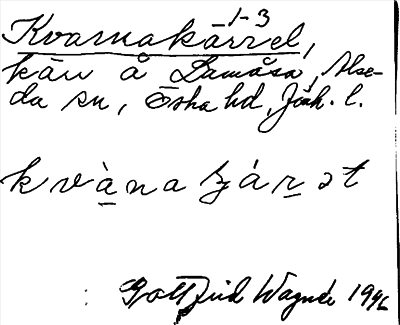 1-3
Kvarnakärret,
kärr å Lamåsa, Alse-
da sn, Östra hd, Jönk. l.
kvànatjárət
Gottfrid Wagnér 1946